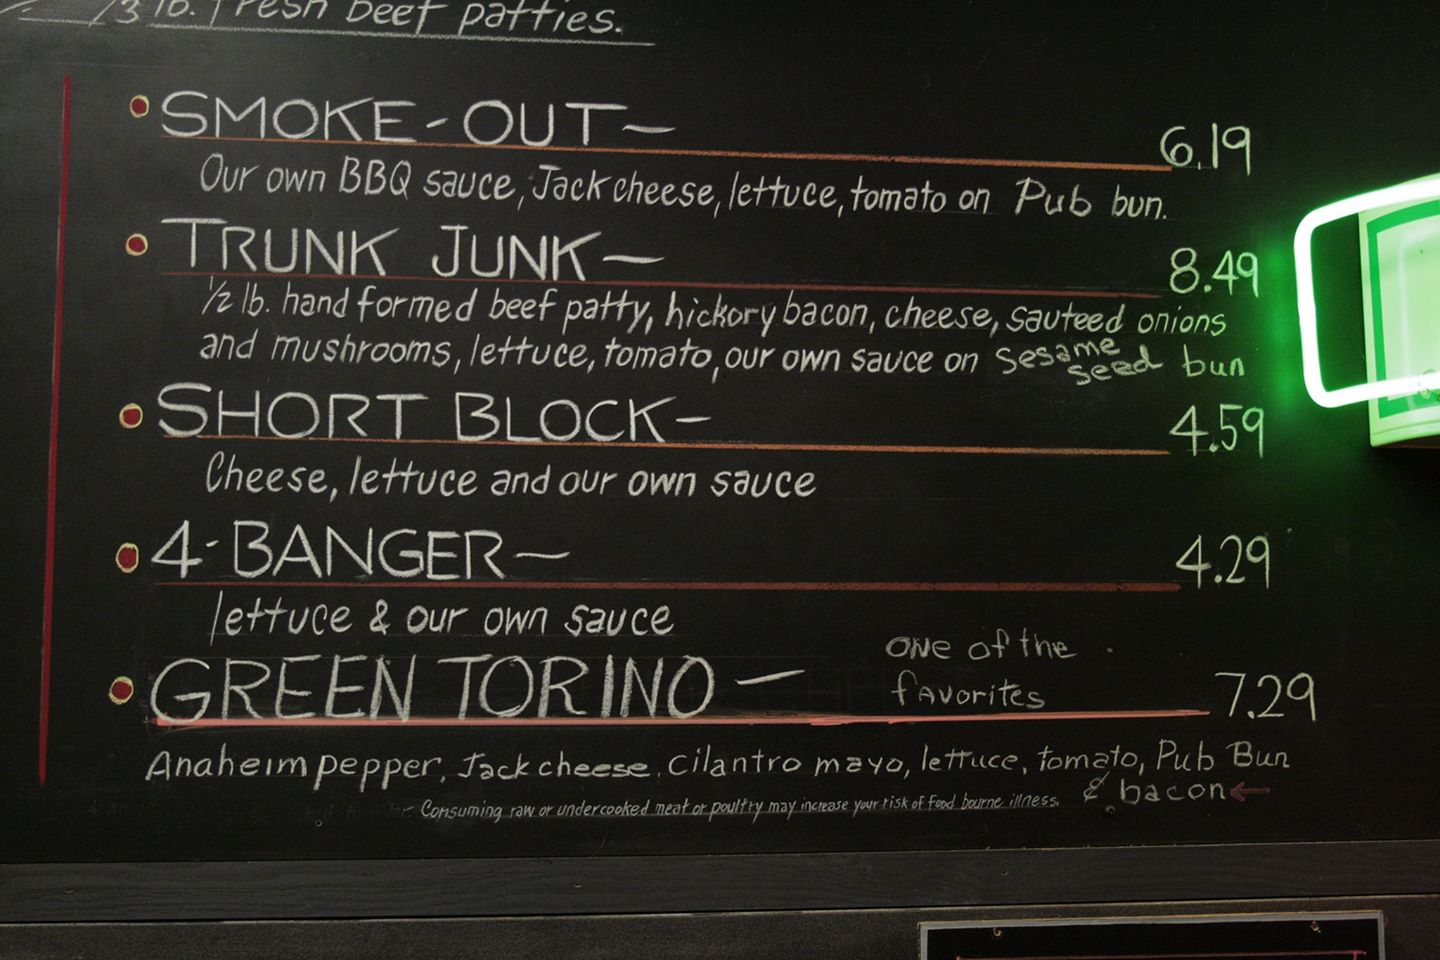 1/3 lb. fresh beef patties.
SMOKE-OUT— 6.19
Our own BBQ sauce, Jack cheese, lettuce, tomato on Pub bun.
TRUNK JUNK— 8.49
1/2 lb. hand formed beef patty, hickory bacon, cheese, sauteed onions
and mushrooms, lettuce, tomato, our own sauce on sesame seed bun
SHORT BLOCK— 4.59
Cheese, lettuce and our own sauce
4-BANGER— 4.29
lettuce & our own sauce
one of the
favorites
GREEN TORINO— 7.29
Anaheim pepper, Jack cheese, cilantro mayo, lettuce, tomato, Pub Bun
& bacon←
- Consuming raw or undercooked meat or poultry may increase your risk of food bourne illness.